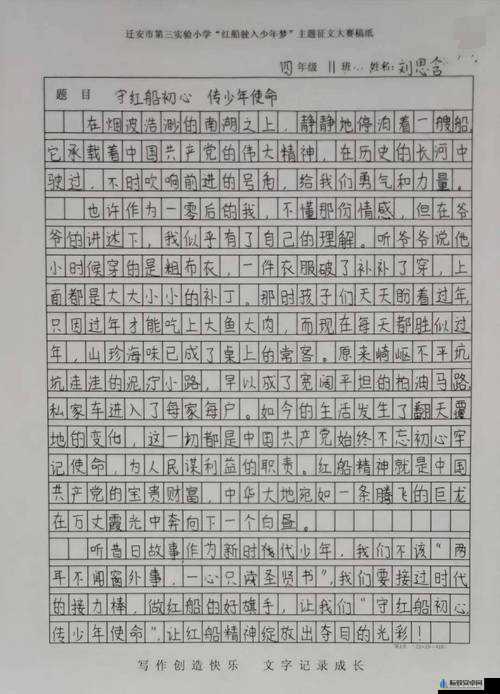 迁安市第三实验小学“红船驶入少年梦”主题征文大赛稿纸
四年级 11班 姓名:刘思含
题目 守红船初心 传少年使命
在烟波浩渺的南湖之上，静静地停泊着一艘船，
它承载着中国共产党的伟大精神，在历史的长河中
驶过，不时吹响前进的号角，给我们勇气和力量。
也许作为一零后的我，不懂那份情感，但在爷
爷的讲述下，我似乎有了自己的理解。听爷爷说他
小时候穿的是粗布衣，一件衣服破了补补了穿，上
面都是大大小小的补丁。那时孩子们天天盼着过年，
只因过年才能吃上大鱼大肉，而现在每天都胜似过
年，山珍海味已成了桌上的常客。原来崎岖不平坑
坑洼洼的泥泞小路，早以成了宽阔平坦的柏油马路，
私家车进入了每家每户。如今的生活发生了翻天覆
地的变化，这一切都是中国共产党始终不忘初心牢
记使命，为人民谋利益的职责。红船精神就是中国
共产党的宝贵财富，中华大地宛如一条腾飞的巨龙
在万丈霞光中奔向下一个白昼。
听昔日故事作为新时代少年，我们不该“两
耳不闻窗外事，一心只读圣贤书”，我们要接过时代
的接力棒，做红船的好旗手，让我们“守红船初心，
传少年使命”，让红船精神绽放出夺目的光彩！
写作创造快乐 文字记录成长